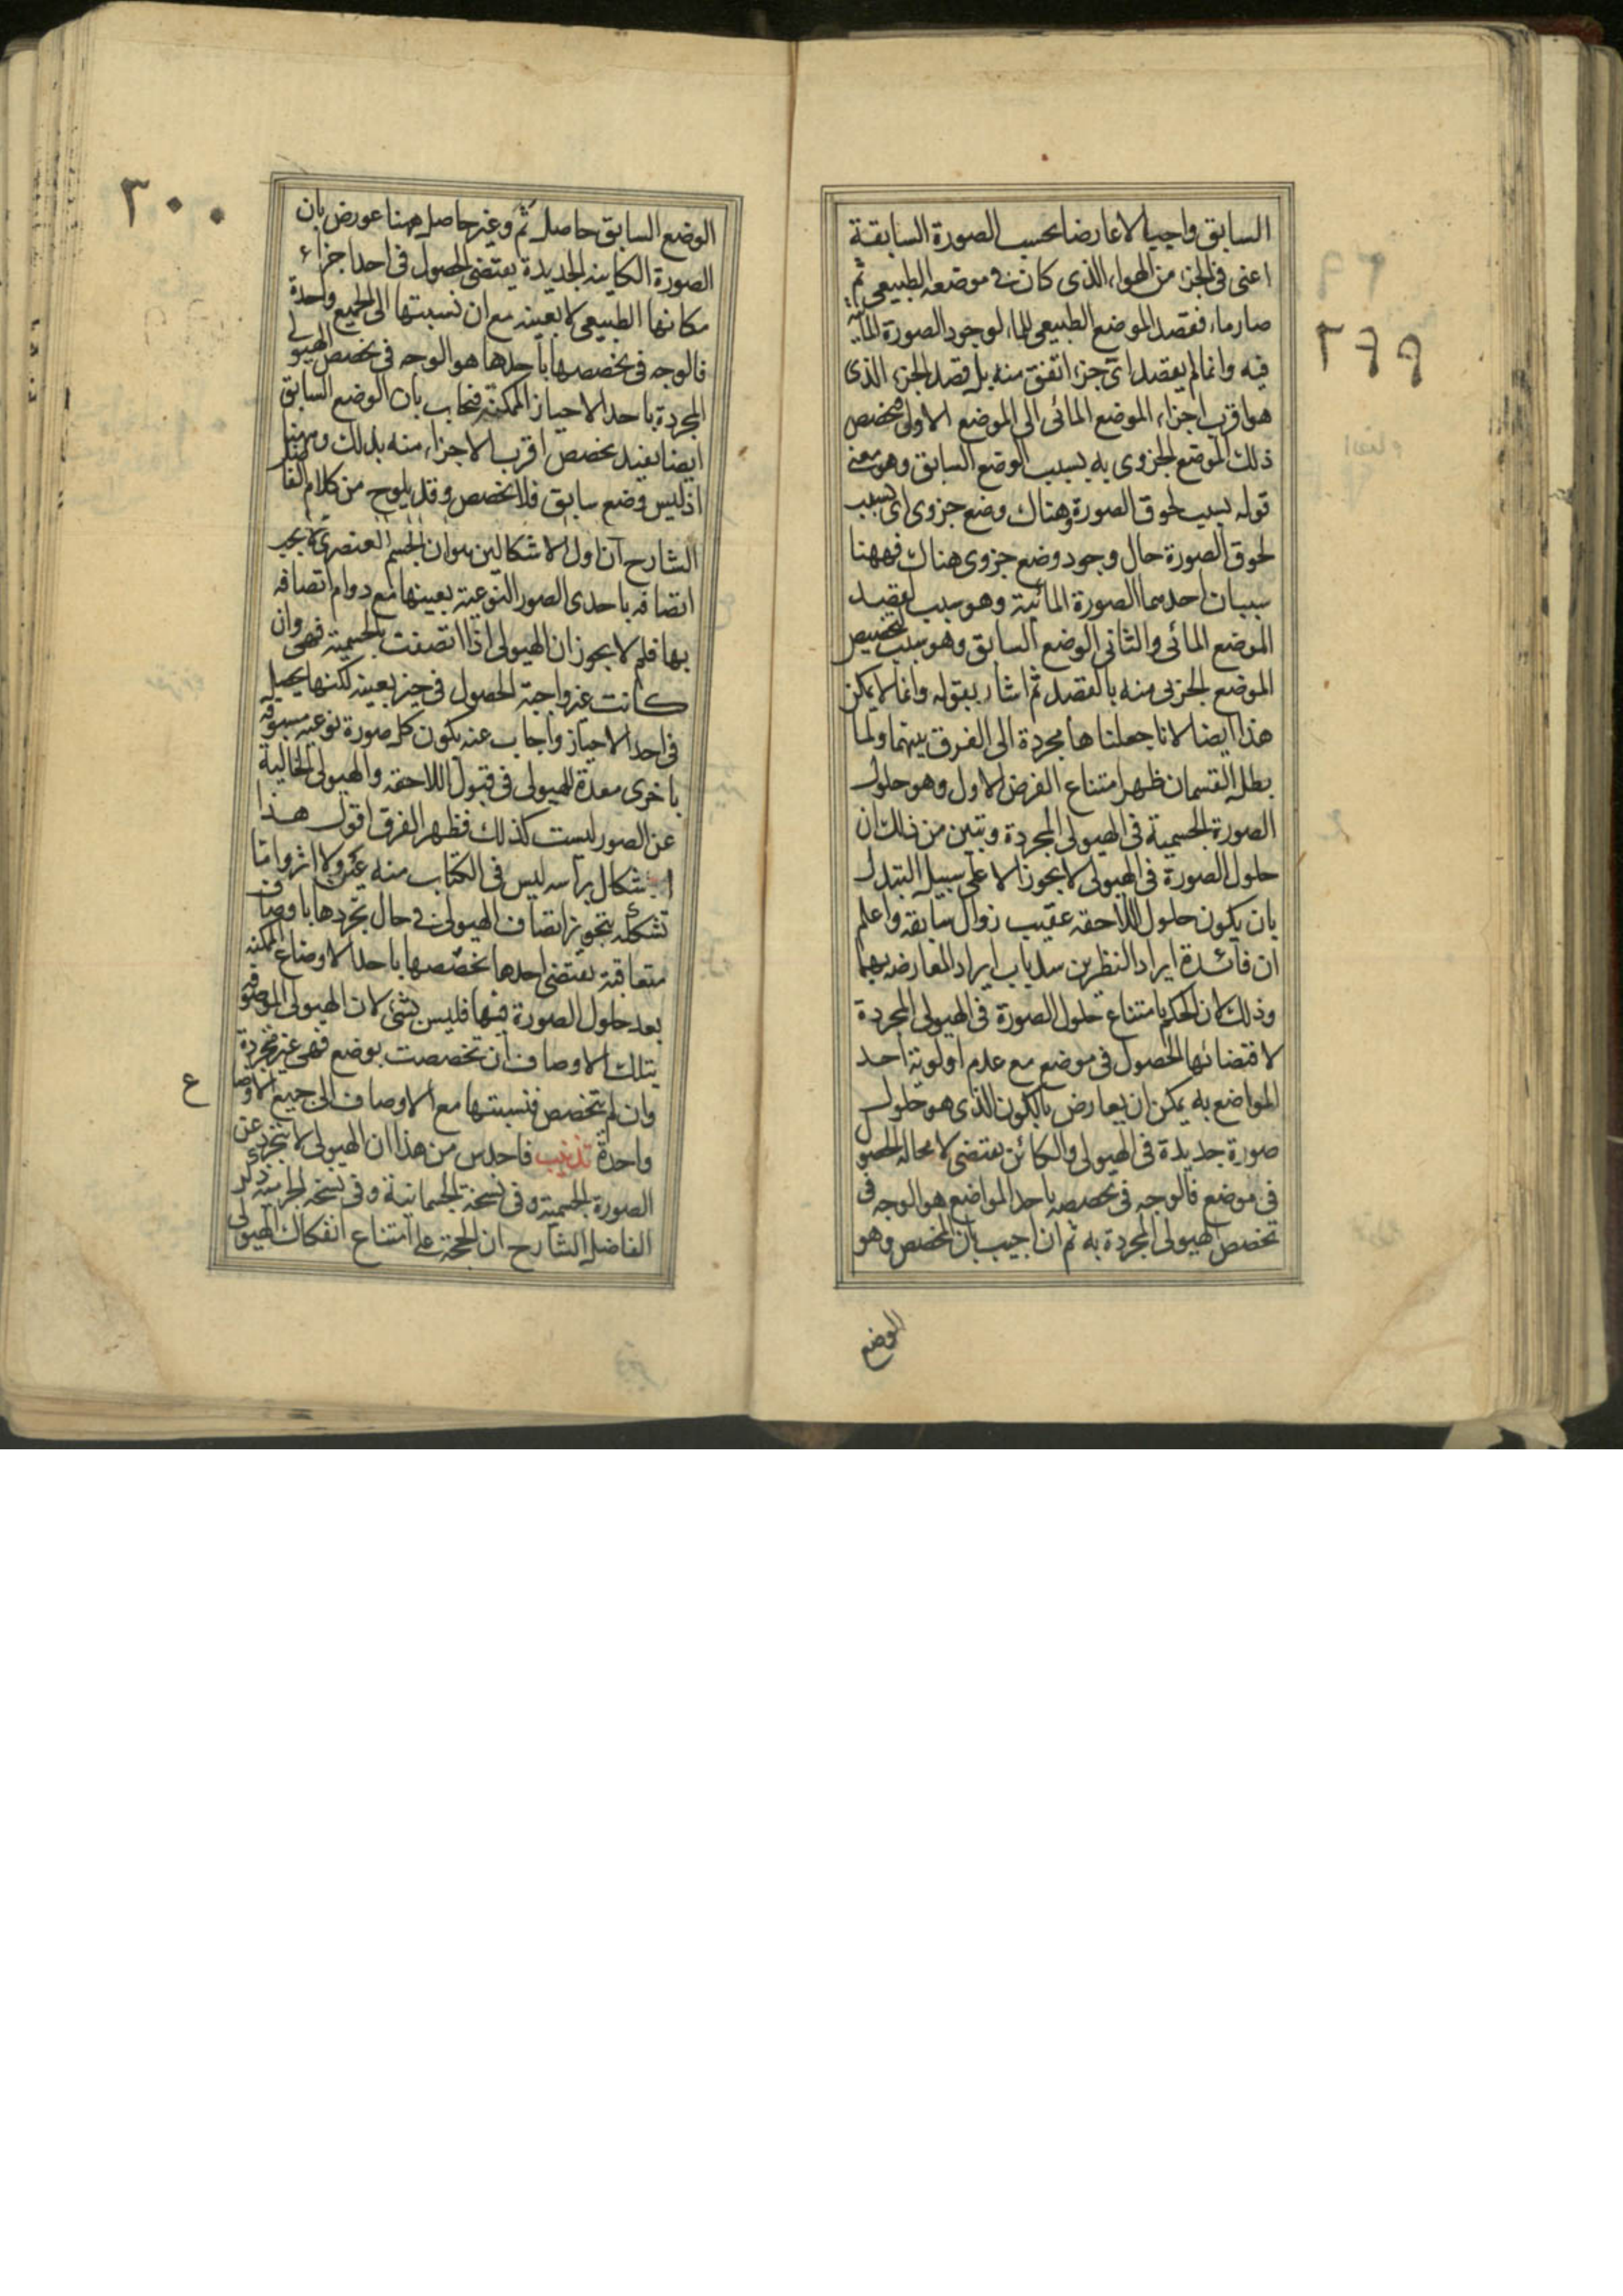 السابق واجبا لا عارضا بحسب الصورة السابقة
اعنى فى الجزء من الهواء الذى كان فى موضعه الطبيعى ثم
صار ماء فقصد الموضع الطبيعى للماء لوجود الصورة المائية
فيه وانما لم يقصد اى جزء اتفق منه بل قصد الجزء الذى
هو اقرب اجزاء الموضع المائى الى الموضع الاول فخصص
ذلك الموضع الجزوى به بسبب الوضع السابق وهو معنى
قوله بسبب لحوق الصورة وهناك وضع جزوى اى بسبب
لحوق الصورة حال وجود وضع جزوى هناك فههنا
سببان احدهما الصورة المائية وهو سبب لقصد
الموضع المائى والثانى الوضع السابق وهو سبب لتخصيص
الموضع الجزئى منه بالقصد ثم اشار بقوله وانما لا يمكن
هذا ايضا لانا جعلناها مجردة الى الفرق بينهما ولما
بطل القسمان ظهر امتناع الفرض الاول وهو حلول
الصورة الجسمية فى الهيولى المجردة وتبين من ذلك ان
حلول الصورة فى الهيولى لا يجوز الا على سبيل التبدل
بان يكون حلول اللاحقه عقيب زوال سابقه واعلم
ان فائدة ايراد النظرين سد باب ايراد المعارضه بهما
وذلك لان الحكم بامتناع حلول الصورة فى الهيولى المجردة
لاقتضائها الحصول فى موضع مع عدم اولوية احد
المواضع به يمكن ان يعارض بالكون الذى هو حلول
صورة جديدة فى الهيولى والكائن يقتضى لا محاله الحصول
فى موضع فالوجه فى تخصصه باحد المواضع هو الوجه فى
تخصص الهيولى المجردة به ثم ان اجيب بان المخصص وهو
الوضع
٢٩٩
٣٠٠
الوضع السابق حاصل ثم وغير حاصل ههنا عورض بان
الصورة الكاينه الجديدة يقتضى الحصول فى احد اجزاء
مكانها الطبيعى لا بعينه مع ان نسبتها الى الجميع واحدة
فالوجه فى تخصصها باحدها هو الوجه فى تخصص الهيولى
المجردة باحد الاحياز الممكنة فيجاب بان الوضع السابق
ايضا يفيد تخصص اقرب الاجزاء منه بذلك وههنا
اذ ليس وضع سابق فلا تخصص وقد يلوح من كلام الفاضل
الشارح ان اول الاشكالين هو ان الجسم العنصرى لا يجب
اتصافه باحدى الصور النوعية بعينها مع دوام اتصافه
بها فلم لا يجوز ان الهيولى اذا اتصفت بالجسمية فهى وان
كانت غير واجبة الحصول فى حيز بعينه لكنها يحصل
فى احد الاحياز واجاب عنه بكون كل صورة نوعيه مسبوقه
باخرى معدة للهيولى فى قبول اللاحقه والهيولى الخالية
عن الصور ليست كذلك فظهر الفرق اقول هذا
اشكال براسه ليس فى الكتاب منه عين ولا اثر واما
تشككه بتجويز اتصاف الهيولى فى حال تجردها باوصاف
متعاقبة يقتضى احدها تخصصها باحد الاوضاع الممكنه
بعد حلول الصورة فيها فليس بشئ لان الهيولى الموصوفه
بتلك الاوصاف ان تخصصت بوضع فهى غير مجردة
وان لم يتخصص فنسبتها مع الاوصاف الى جميع الاوضاع
واحدة تذنيب فاحدس من هذا ان الهيولى لا يتجرد عن
الصورة الجسمية وفى نسخة الجسمانية وفى نسخه الجرميه ذكر
الفاضل الشارح ان الحجة على امتناع انفكاك الهيولى